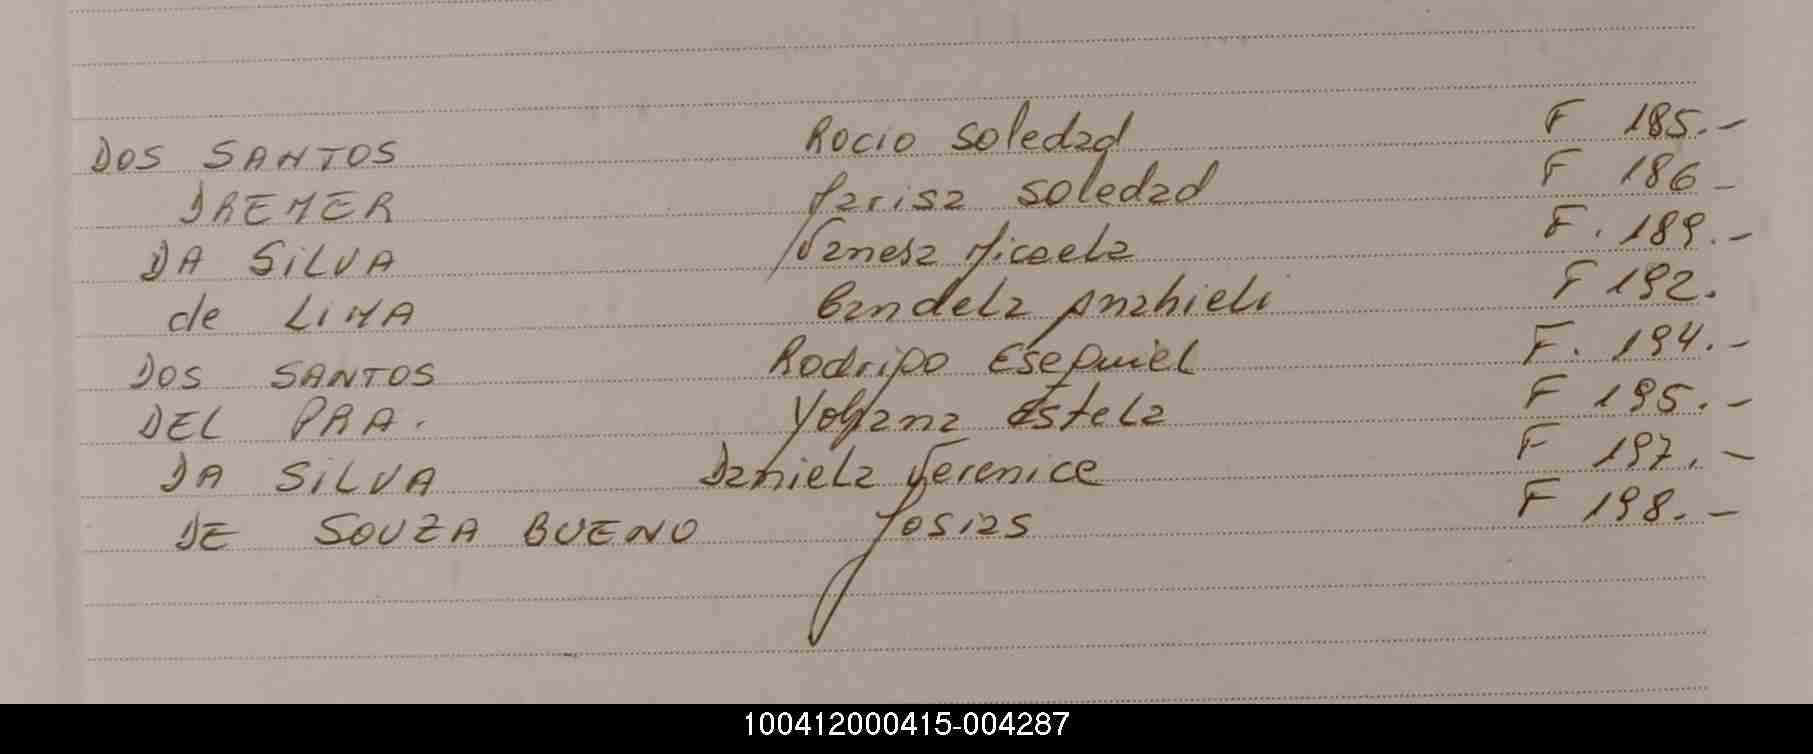 DOS SANTOS Rocio Soledad F 185.-
DREMER Marisa Soledad F 186-
DA SiLVA Vanesa Micaela F. 189.-
de LiMA Candela Anahieli F 192.
DOS SANTOS Rodrigo Esequiel F. 194.-
DEL PRA. Yohana Estela F 195.-
DA SiLVA Daniela Verenice F 197.-
DE SOUZA BUENO Josias F 198.-
100412000415-004287